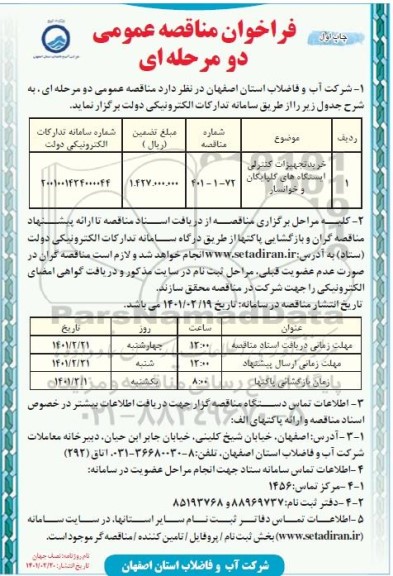 چاپ اول
فراخوان مناقصه عمومی
دو مرحله ای
شرکت آب و فاضلاب استان اصفهان
۱- شرکت آب و فاضلاب استان اصفهان در نظر دارد مناقصه عمومی دو مرحله ای ، به
شرح جدول زیر را از طریق سامانه تدارکات الکترونیکی دولت برگزار نماید.
ردیف موضوع شماره مناقصه مبلغ تضمین (ریال) شماره سامانه تدارکات الکترونیکی دولت
۱ خرید تجهیزات کنترلی ایستگاه های گلپایگان و خوانسار ۴۰۱-۱-۷۲ ۱.۴۲۷.۰۰۰.۰۰۰ ۲۰۰۱۰۰۱۴۳۴۰۰۰۰۴۴
۲- کلیه مراحل برگزاری مناقصه از دریافت اسناد مناقصه تا ارائه پیشنهاد
مناقصه گران و بازگشایی پاکتها از طریق درگاه سامانه تدارکات الکترونیکی دولت
(ستاد) به آدرس: www.setadiran.ir انجام خواهد شد و لازم است مناقصه گران در
صورت عدم عضویت قبلی، مراحل ثبت نام در سایت مذکور و دریافت گواهی امضای
الکترونیکی را جهت شرکت در مناقصه محقق سازند.
تاریخ انتشار مناقصه در سامانه: تاریخ ۴۰۱/۰۲/۱۹ می باشد.
عنوان ساعت روز تاریخ
مهلت زمانی دریافت اسناد مناقصه ۱۳:۰۰ چهارشنبه ۱۴۰۱/۲/۲۱
مهلت زمانی ارسال پیشنهاد ۱۳:۰۰ شنبه
زمان بازگشائی پاکتها ۸:۰۰ یکشنبه
۳- اطلاعات تماس دستگاه مناقصه گزار جهت دریافت اطلاعات بیشتر در خصوص
اسناد مناقصه و ارائه پاکتهای الف:
۳-۱- آدرس: اصفهان، خیابان شیخ کلینی، خیابان جابر ابن حیان، دبیرخانه معاملات
شرکت آب و فاضلاب استان اصفهان، تلفن: ۸-۳۶۶۸۰۰۳۰-۰۳۱، اتاق (۲۹۲)
۴- اطلاعات تماس سامانه ستاد جهت انجام مراحل عضویت در سامانه:
۴-۱- مرکز تماس: ۱۴۵۶
۴-۲- دفتر ثبت نام: ۸۸۹۶۹۷۳۷ و ۸۵۱۹۳۷۶۸
۵- اطلاعات تماس دفاتر ثبت نام سایر استانها، در سایت سامانه
(www.setadiran.ir) بخش ثبت نام / پروفایل / تامین کننده / مناقصه گر موجود است.
نام روزنامه: نصف جهان
تاریخ انتشار: ۱۴۰۱/۰۲/۲۰
شرکت آب و فاضلاب استان اصفهان
ParsNamadData